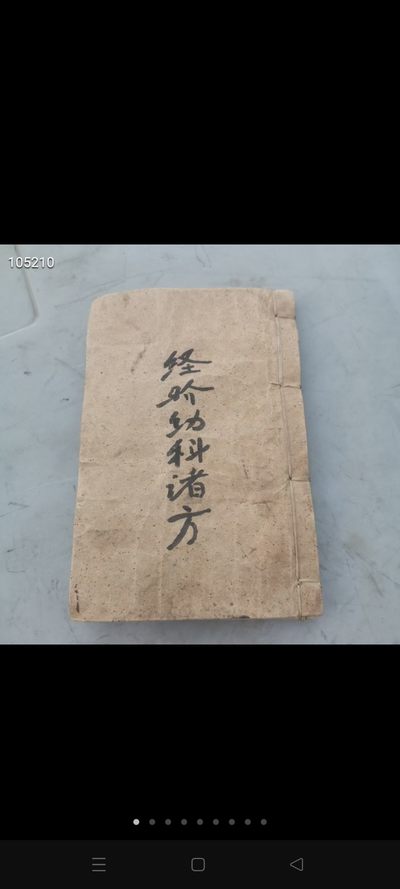 105210
经验幼科诸方